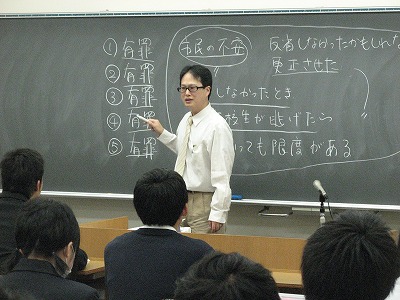 ① 有罪
② 有罪
③ 有罪
④ 有罪
⑤ 有罪
市民の不安
反省しなかったかもしれな
更正させた
しなかったとき
生が逃げたら
っても限度がある